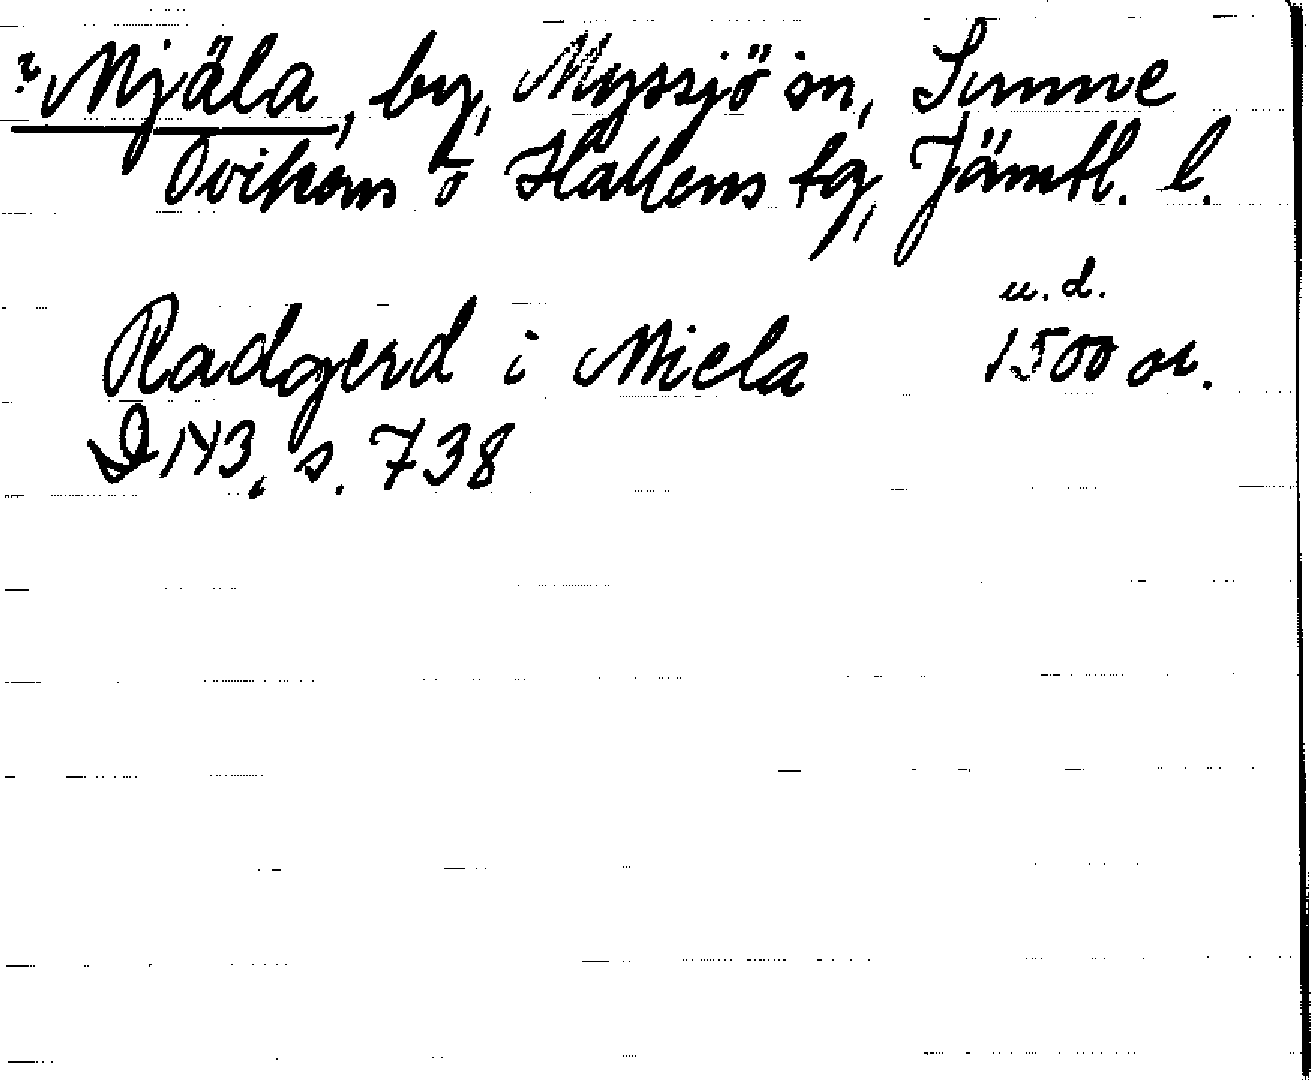 ? Mjäla, by, Myssjö sn, Sunne
Ovikens o Hallens tg, Jämtl. l.
u. d.
Radgerd i Miela 1500 or.
D 143, s. 738